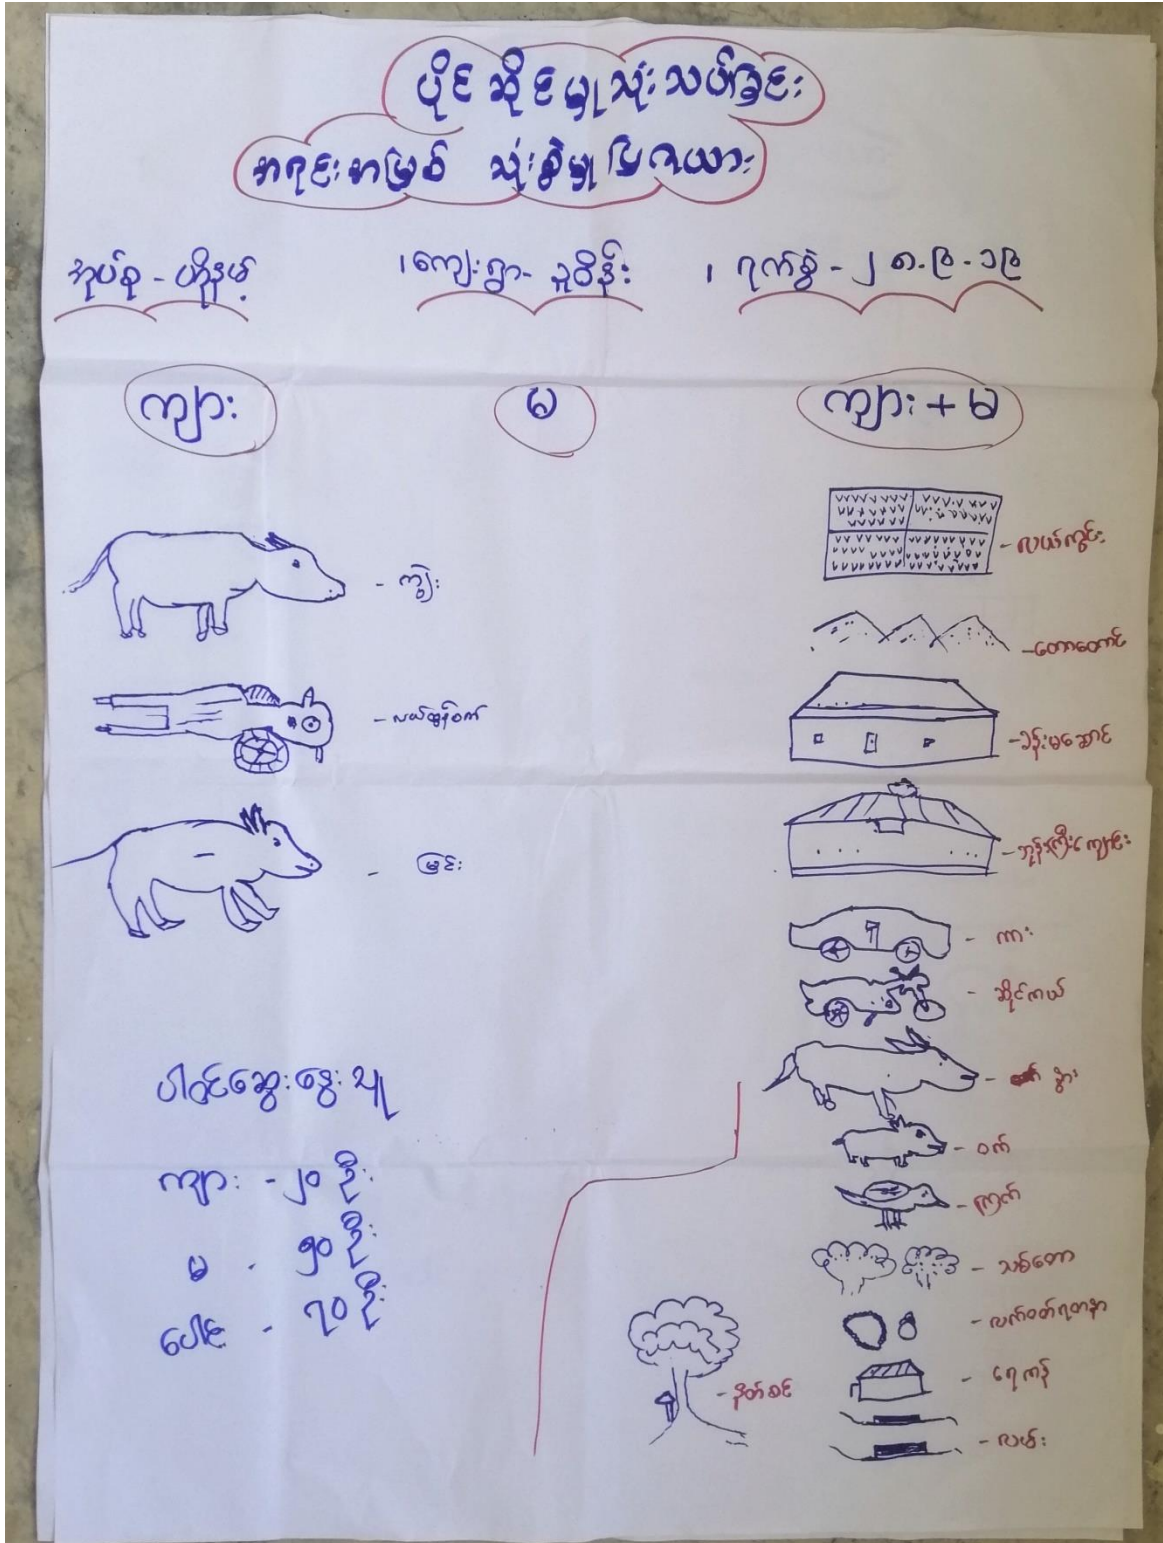 ပိုင်ဆိုင်မှုသုံးသပ်ခြင်း
အရင်းအမြစ် သုံးစွဲမှုပြဇယား
အုပ်စု - ဟိုနမ့် ၊ ကျေးရွာ - ၊ ရက်စွဲ - ၂၈.၆.၁၆
ကျား မ ကျား + မ
- လယ်ကွင်း
- ကျွဲ
- တောတောင်
- လယ်ထွန်စက်
- ခန်းမဆောင်
- ဘုန်းကြီးကျောင်း
- မြင်း
- ကား
- ဆိုင်ကယ်
- နွား
- ဝက်
- ကြက်
- သစ်တော
- လက်ဝတ်ရတနာ
- ရေကန်
- နတ်စင်
- လမ်း
ပါဝင်ဆွေးနွေးသူ
ကျား - ၂၀ ဦး
မ - ၅၀ ဦး
ပေါင်း - ၇၀ ဦး